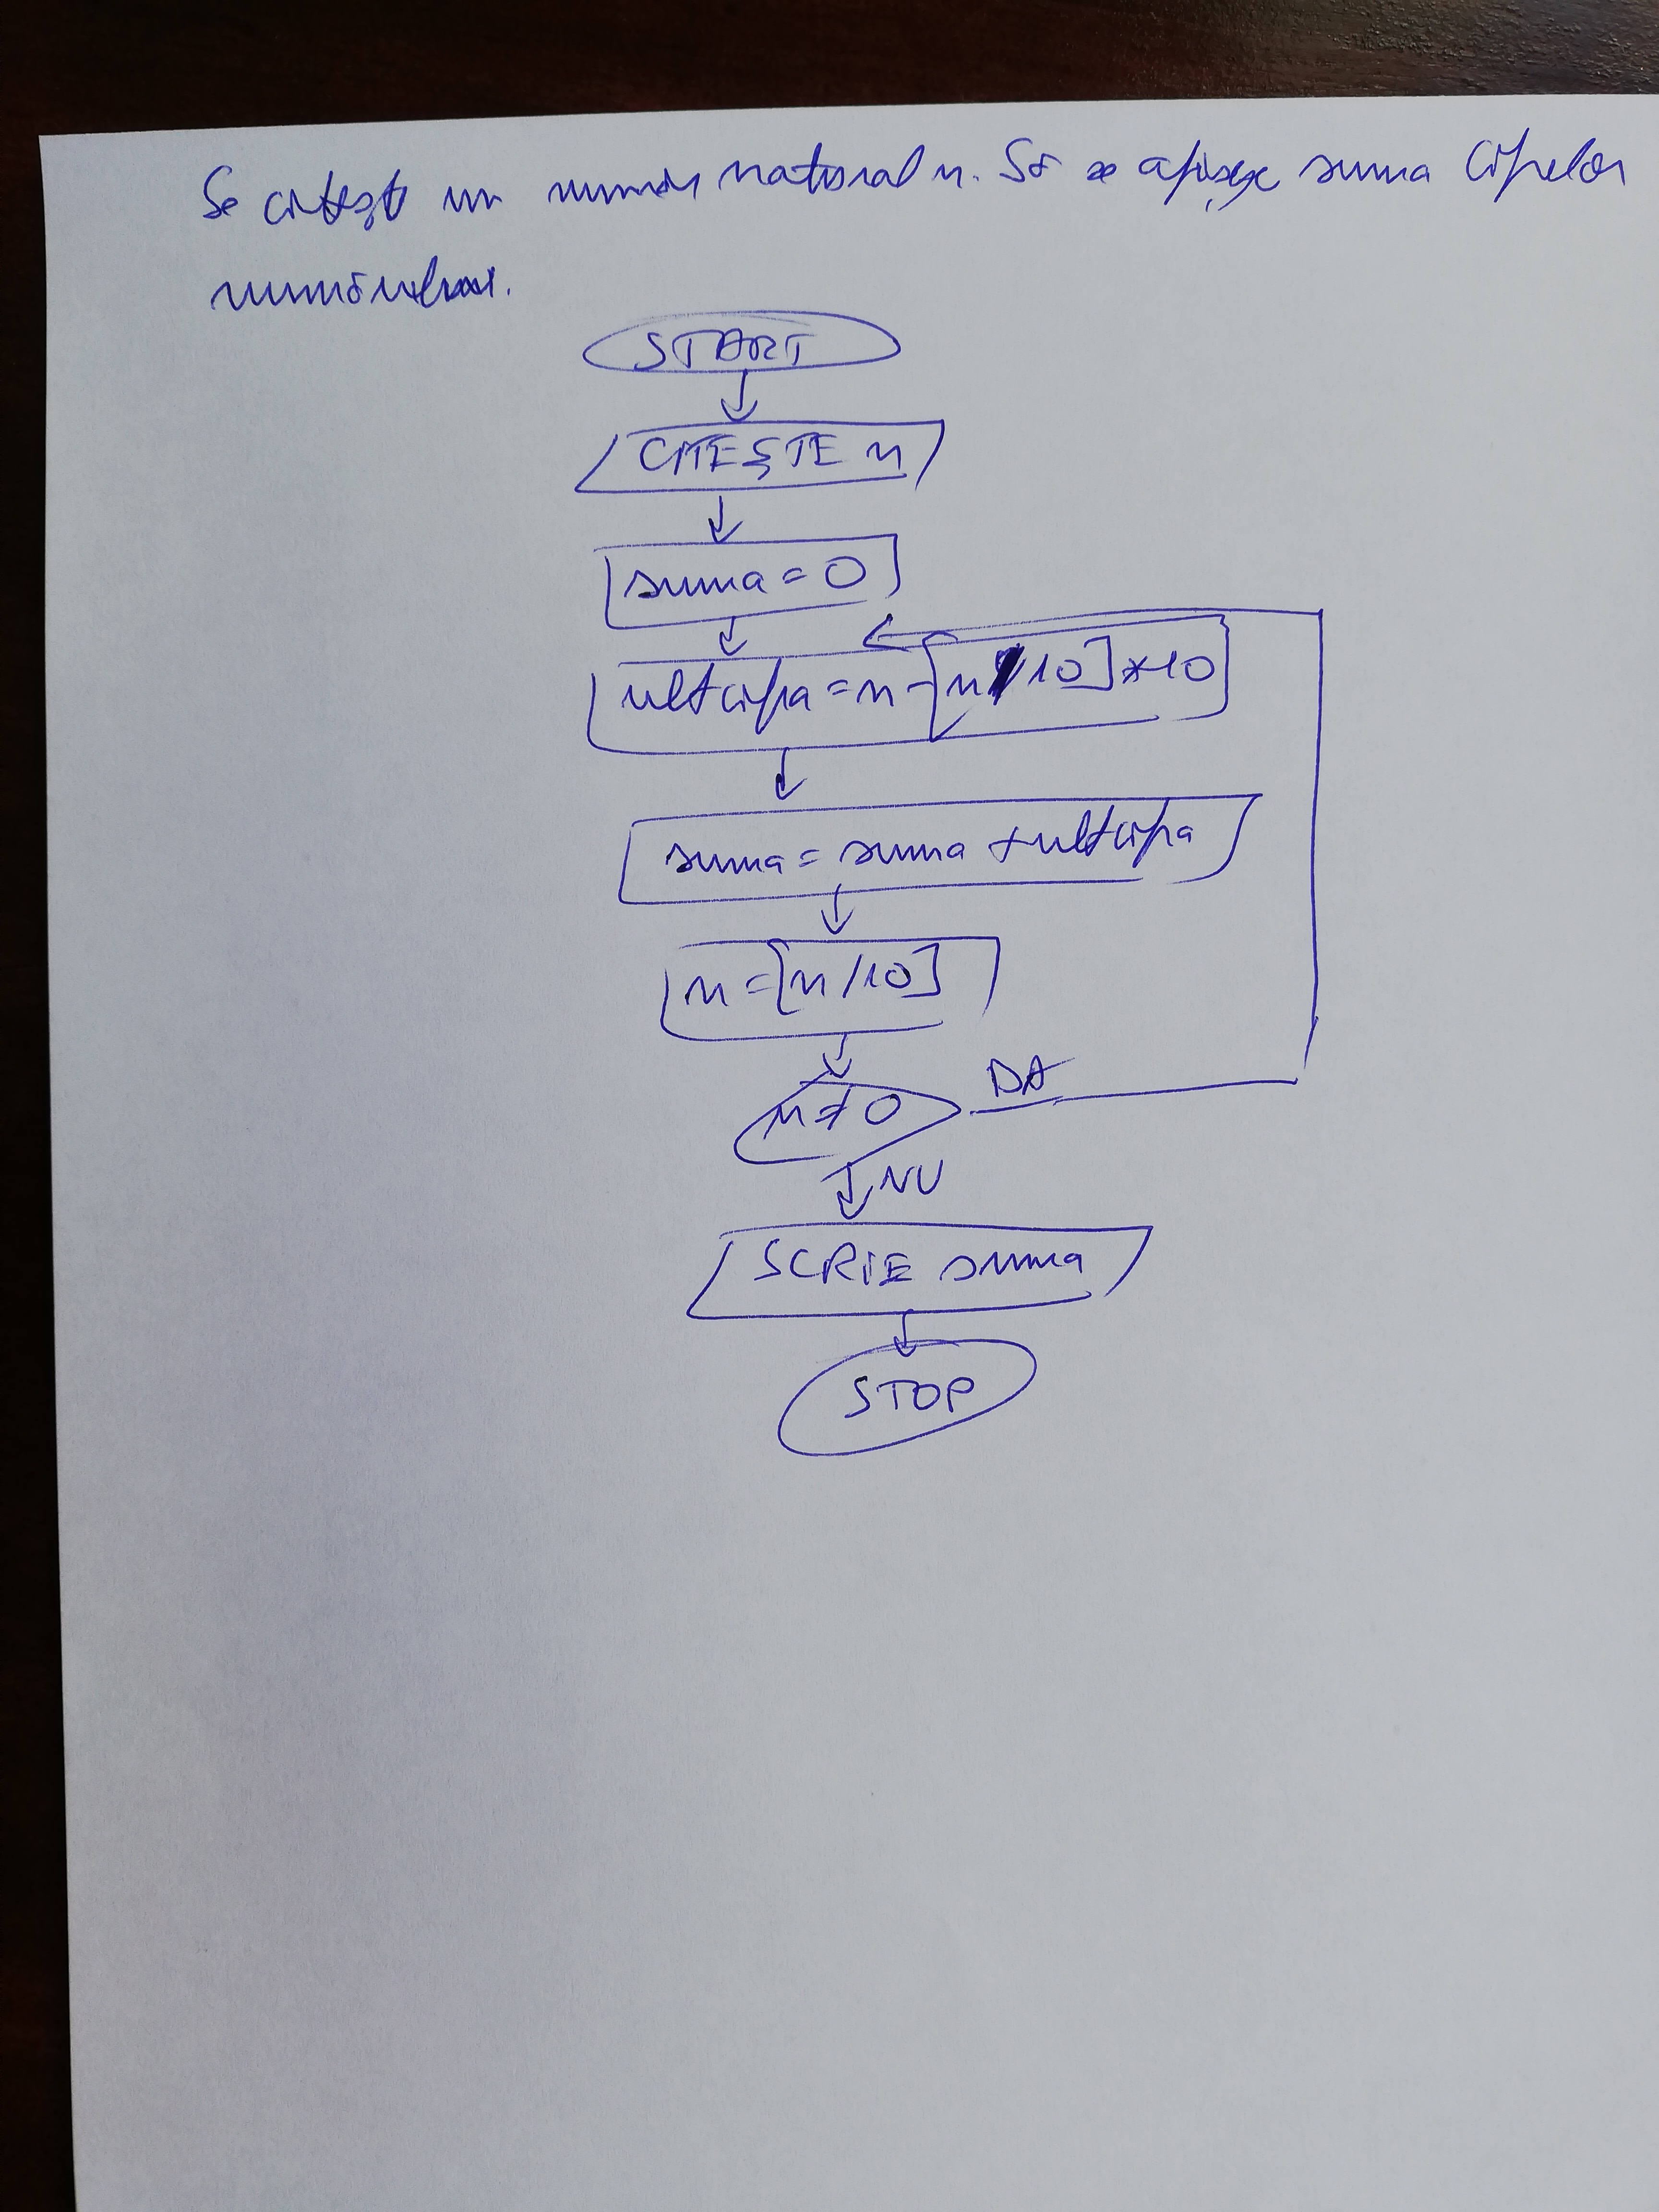 Se citește un număr natural n. Să se afișeze suma cifrelor
numărului.
START
CITEȘTE n
suma = 0
ultcifra = n - [n/10] * 10
suma = suma + ultcifra
n = [n/10]
n ≠ 0
DA
NU
SCRIE suma
STOP